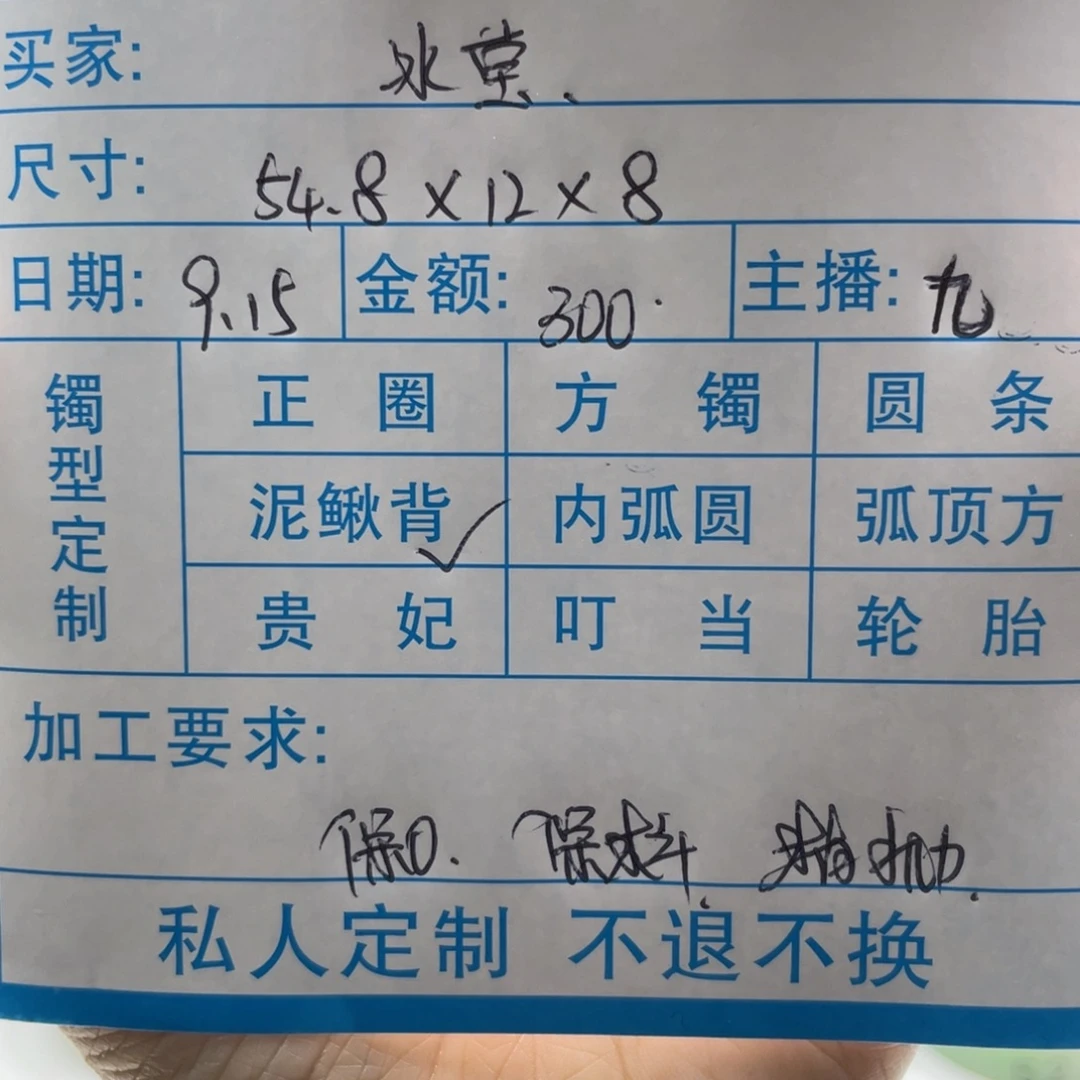 买家: 冰堂.
尺寸: 54.8×12×8
日期: 9.15 金额: 300 主播: 九
镯型定制
正圈 方镯 圆条
泥鳅背✓ 内弧圆 弧顶方
贵妃 叮当 轮胎
加工要求:
保口. 保料. 精抛.
私人定制 不退不换